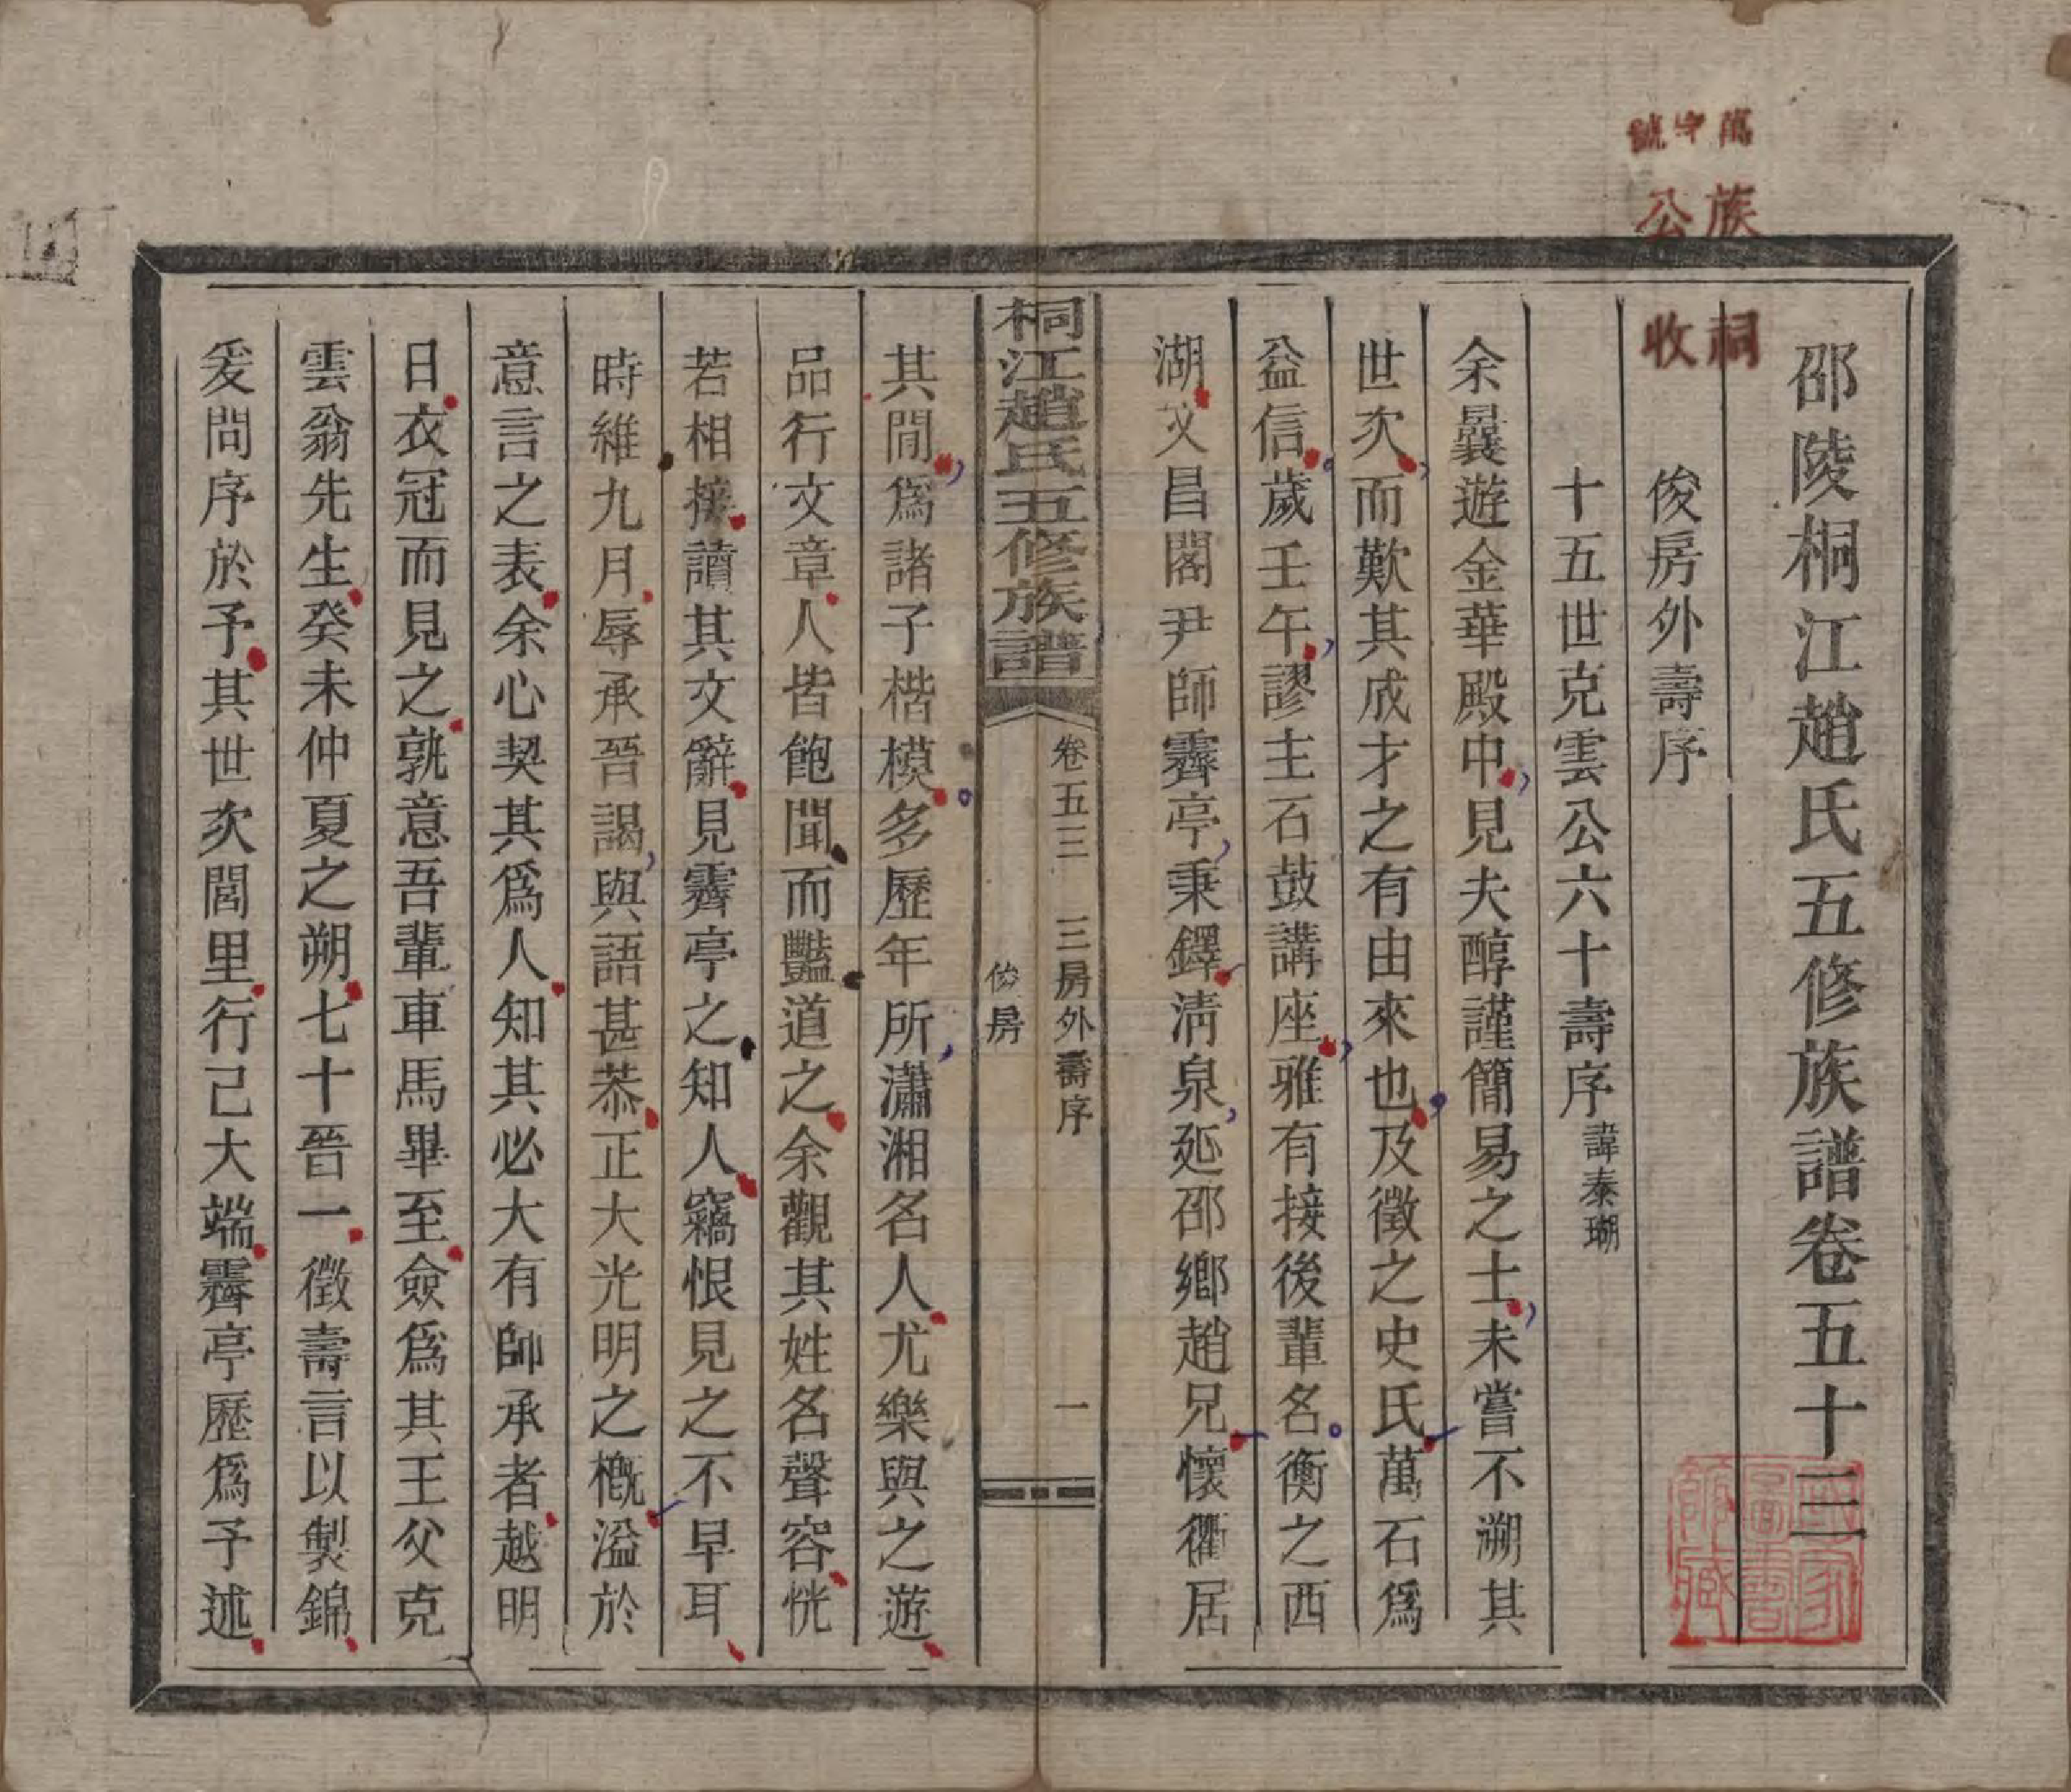 邵陵桐江趙氏五修族譜卷五十三
俊房外壽序
十五世克雲公六十壽序諱泰瑚
余曩遊金華殿中見夫醇謹簡易之士未嘗不溯其
世次而歎其成才之有由來也及徵之史氏萬石爲
益信歲壬午謬主石鼓講座雅有接後輩名衡之西
湖文昌閣尹師霽亭秉鐸淸泉延邵鄉趙兄懷衢居
桐江趙氏五修族譜
卷五三 三房外壽序 一
俊房
其閒爲諸子楷模多歷年所瀟湘名人尤樂與之遊
品行文章人皆飽聞而豔道之余觀其姓名聲容恍
若相接讀其文辭見霽亭之知人竊恨見之不早耳
時維九月辱承晉謁與語甚恭正大光明之槪溢於
意言之表余心契其爲人知其必大有師承者越明
日衣冠而見之孰意吾輩車馬畢至僉爲其王父克
雲翁先生癸未仲夏之朔七十晉一徵壽言以製錦
爰問序於予其世次閭里行己大端霽亭歷爲予述
萬字號
族公
祠收
國家圖書館藏